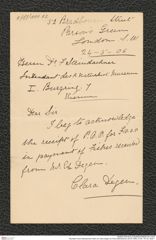 52 Bradbourne Street
Parsons Green
London S.W.
24-5-06
Herrn Dr F. Steindachner
Intendant des K. K. Naturhist. Museum
I. Burgring 7
Vienna
Dear Sir
I beg to acknowledge
the receipt of P.O.O. for
in payment of Fishes received
from Mr. Ed. Degen.
Clara Degen.